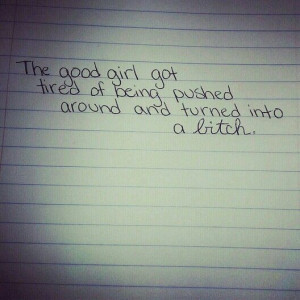 The good girl got
tired of being pushed
around and turned into
a bitch.